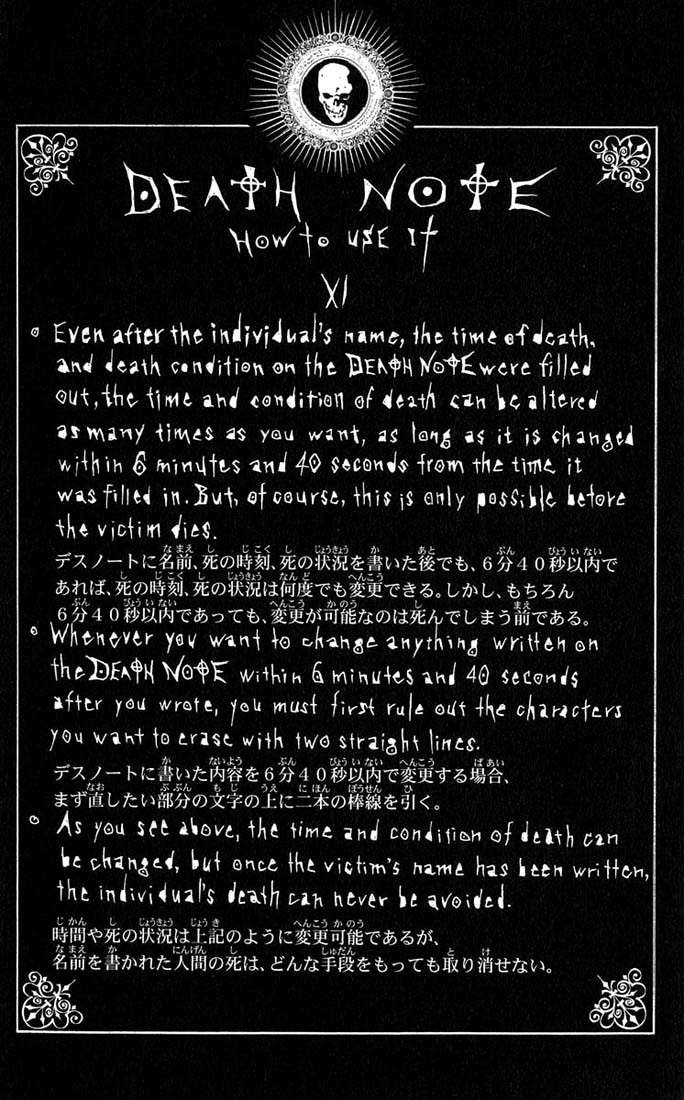 DEATH NOTE
HOW TO USE IT
XI
Even after the individual's name, the time of death,
and death condition on the DEATH NOTE were filled
out, the time and condition of death can be altered
as many times as you want, as long as it is changed
within 6 minutes and 40 seconds from the time it
was filled in. But, of course, this is only possible before
the victim dies.
デスノートに名前、死の時刻、死の状況を書いた後でも、6分40秒以内で
あれば、死の時刻、死の状況は何度でも変更できる。しかし、もちろん
6分40秒以内であっても、変更が可能なのは死んでしまう前である。
Whenever you want to change anything written on
the DEATH NOTE within 6 minutes and 40 seconds
after you wrote, you must first rule out the characters
you want to erase with two straight lines.
デスノートに書いた内容を6分40秒以内で変更する場合、
まず直したい部分の文字の上に二本の棒線を引く。
As you see above, the time and condition of death can
be changed, but once the victim's name has been written,
the individual's death can never be avoided.
時間や死の状況は上記のように変更可能であるが、
名前を書かれた人間の死は、どんな手段をもっても取り消せない。